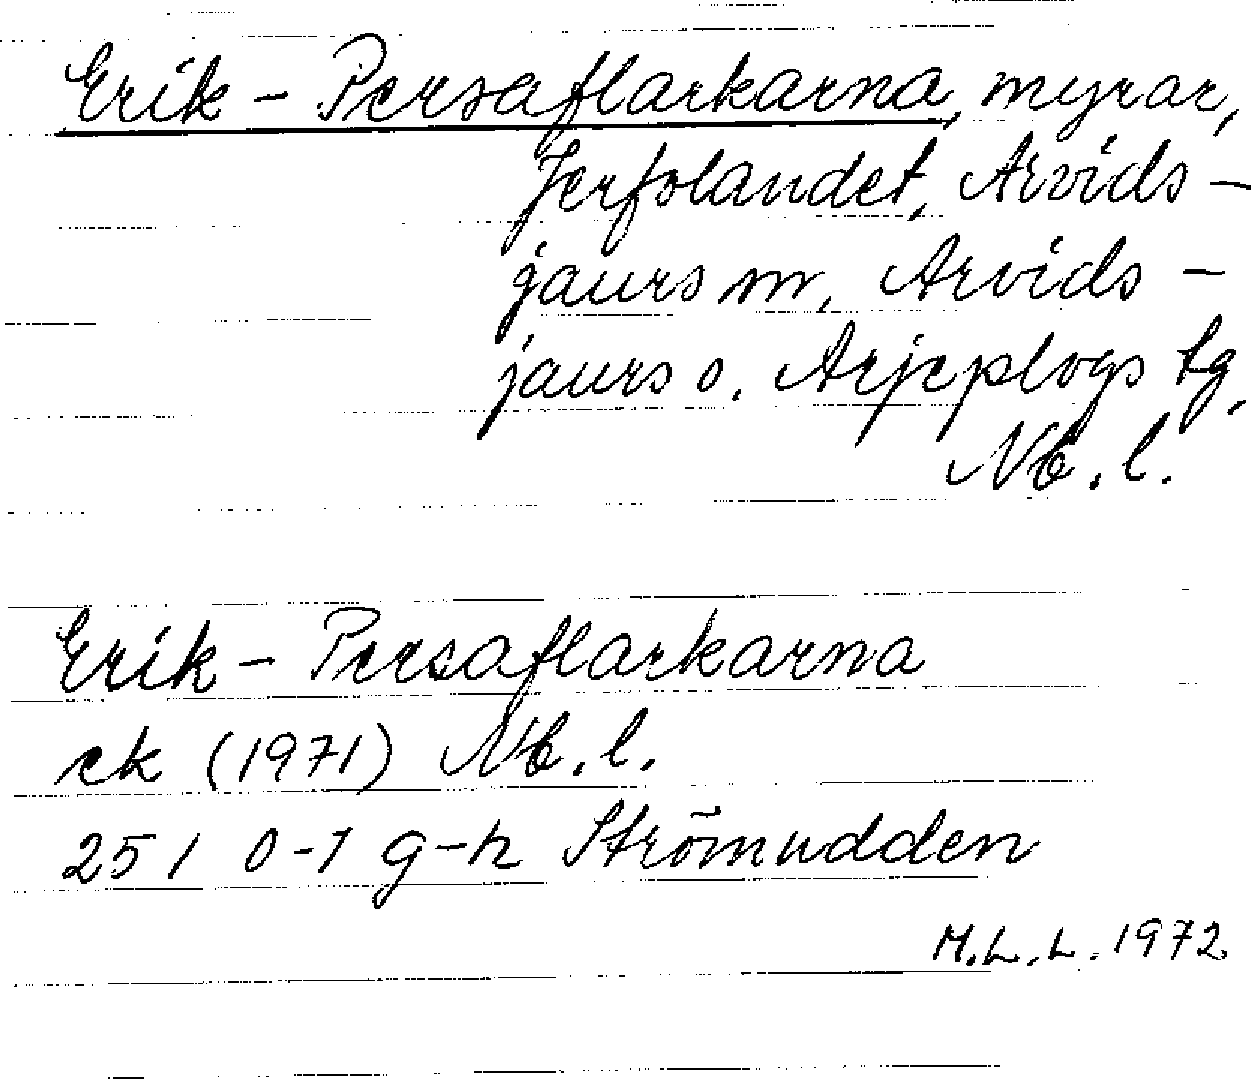 Erik-Persaflarkarna, myrar,
Jerfolandet, Arvids-
jaurs sn, Arvids-
jaurs o. Arjeplogs tg,
Nb. l.
Erik-Persaflarkarna
ek (1971) Nb. l.
25 I 0-1 g-h Strömudden
M.L.L. 1972